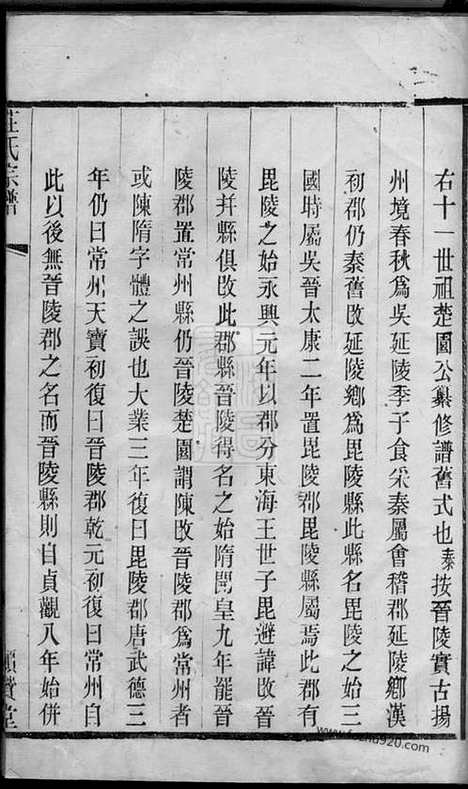 右十一世祖楚園公纂修譜舊式也泰按晉陵實古揚
州境春秋爲吳延陵季子食采秦屬會稽郡延陵鄉漢
初郡仍秦舊改延陵鄉爲毘陵縣此縣名毘陵之始三
國時屬吳晉太康二年置毘陵郡毘陵縣屬焉此郡有
毘陵之始永興元年以郡分東海王世子毘避諱改晉
陵并縣俱改此郡縣晉陵得名之始隋開皇九年罷晉
陵郡置常州縣仍晉陵楚園謂陳改晉陵郡爲常州者
或陳隋字體之誤也大業三年復曰毘陵郡唐武德三
年仍曰常州天寶初復曰晉陵郡乾元初復曰常州自
此以後無晉陵郡之名而晉陵縣則自貞觀八年始併
氏宗譜
堂
www.fozhu920.com